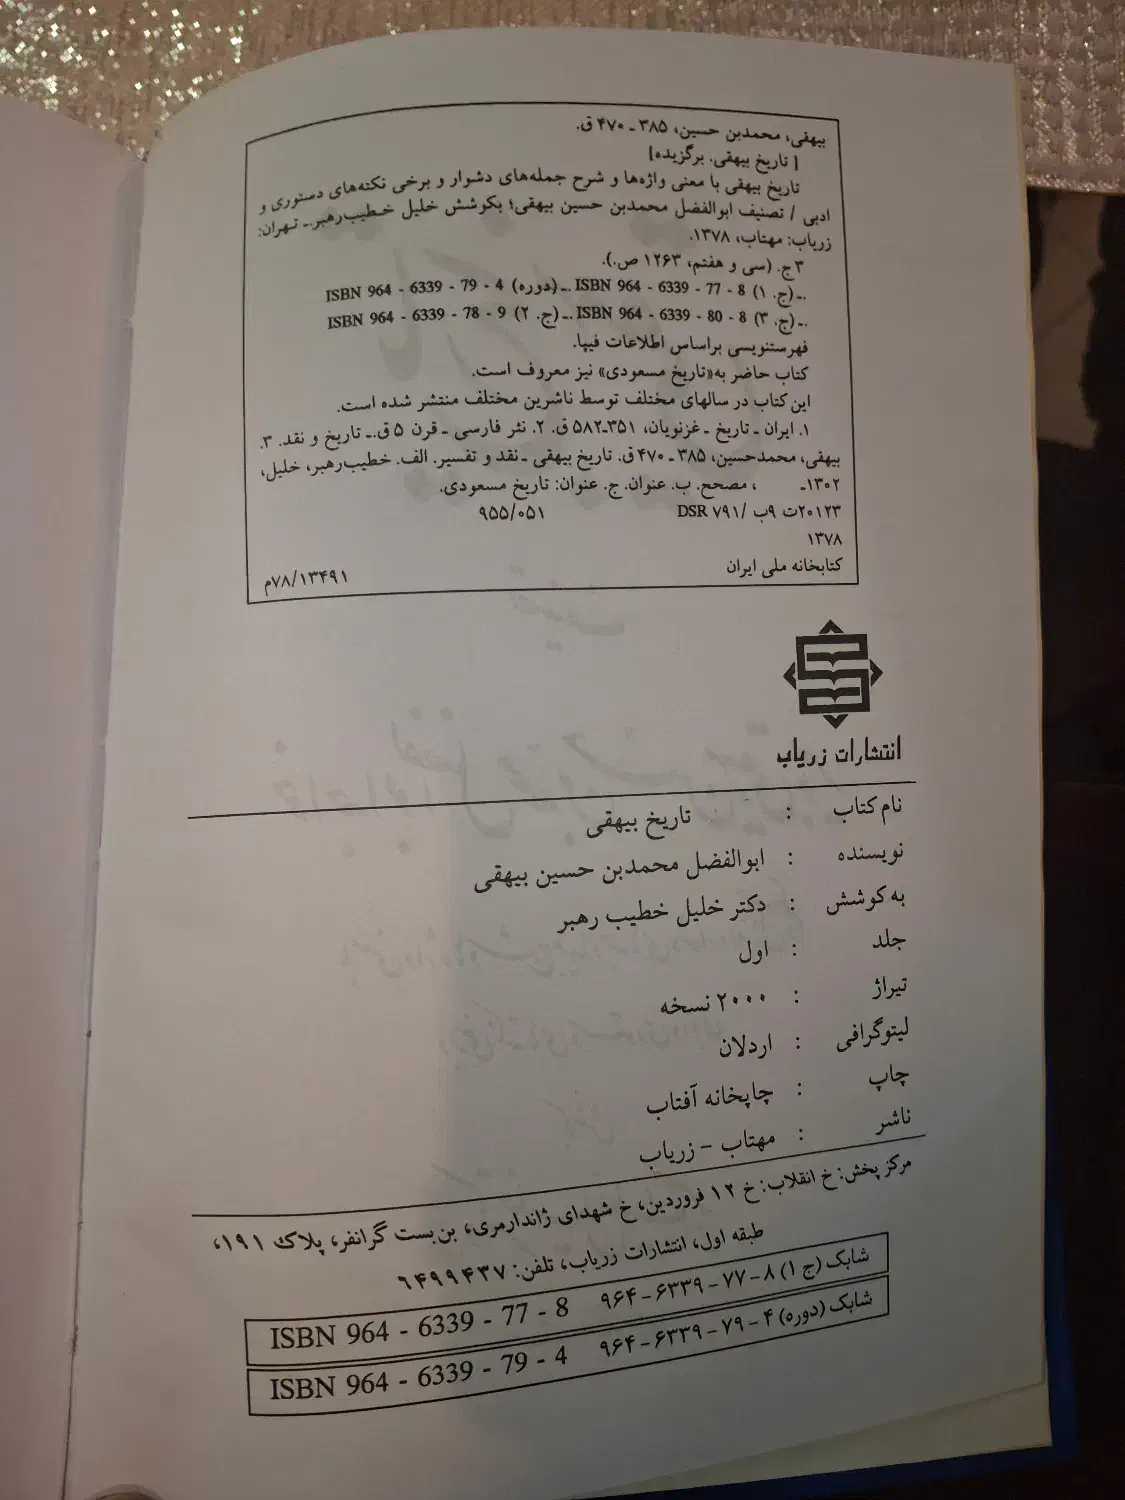 بیهقی، محمدبن حسین، ۳۸۵ ـ ۴۷۰ ق.
[ تاریخ بیهقی. برگزیده]
تاریخ بیهقی با معنی واژه‌ها و شرح جمله‌های دشوار و برخی نکته‌های دستوری و
ادبی / تصنیف ابوالفضل محمدبن حسین بیهقی؛ بکوشش خلیل خطیب‌رهبر.ـ تهران:
زریاب: مهتاب، ۱۳۷۸.
۳ج. (سی و هفتم، ۱۲۶۳ ص.).
.ـ(ج. ۱) ISBN 964 - 6339 - 77 - 8 .ـ(دوره) ISBN 964 - 6339 - 79 - 4
.ـ(ج. ۳) ISBN 964 - 6339 - 80 - 8 .ـ(ج. ۲) ISBN 964 - 6339 - 78 - 9
فهرستنویسی براساس اطلاعات فیپا.
کتاب حاضر به«تاریخ مسعودی» نیز معروف است.
این کتاب در سالهای مختلف توسط ناشرین مختلف منتشر شده است.
۱. ایران ـ تاریخ ـ غزنویان، ۳۵۱ـ۵۸۲ ق. ۲. نثر فارسی ـ قرن ۵ ق.ـ تاریخ و نقد. ۳.
بیهقی، محمدحسین، ۳۸۵ ـ ۴۷۰ ق. تاریخ بیهقی ـ نقد و تفسیر. الف. خطیب‌رهبر، خلیل،
۱۳۰۲ـ ، مصحح. ب. عنوان. ج. عنوان: تاریخ مسعودی.
۲۰۱۲۳ت ۹ب /DSR ۷۹۱ ۹۵۵/۰۵۱
۱۳۷۸
کتابخانه ملی ایران ۷۸/۱۳۴۹۱م
انتشارات زریاب
نام کتاب : تاریخ بیهقی
نویسنده : ابوالفضل محمدبن حسین بیهقی
به کوشش : دکتر خلیل خطیب رهبر
جلد : اول
تیراژ : ۲۰۰۰ نسخه
لیتوگرافی : اردلان
چاپ : چاپخانه آفتاب
ناشر : مهتاب – زریاب
مرکز پخش: خ انقلاب: خ ۱۲ فروردین، خ شهدای ژاندارمری، بن‌بست گرانفر، پلاک ۱۹۱،
طبقه اول، انتشارات زریاب، تلفن: ۶۴۹۹۴۳۷
شابک (ج ۱) ۸–۷۷–۶۳۳۹–۹۶۴ ISBN 964 - 6339 - 77 - 8
شابک (دوره) ۴–۷۹–۶۳۳۹–۹۶۴ ISBN 964 - 6339 - 79 - 4